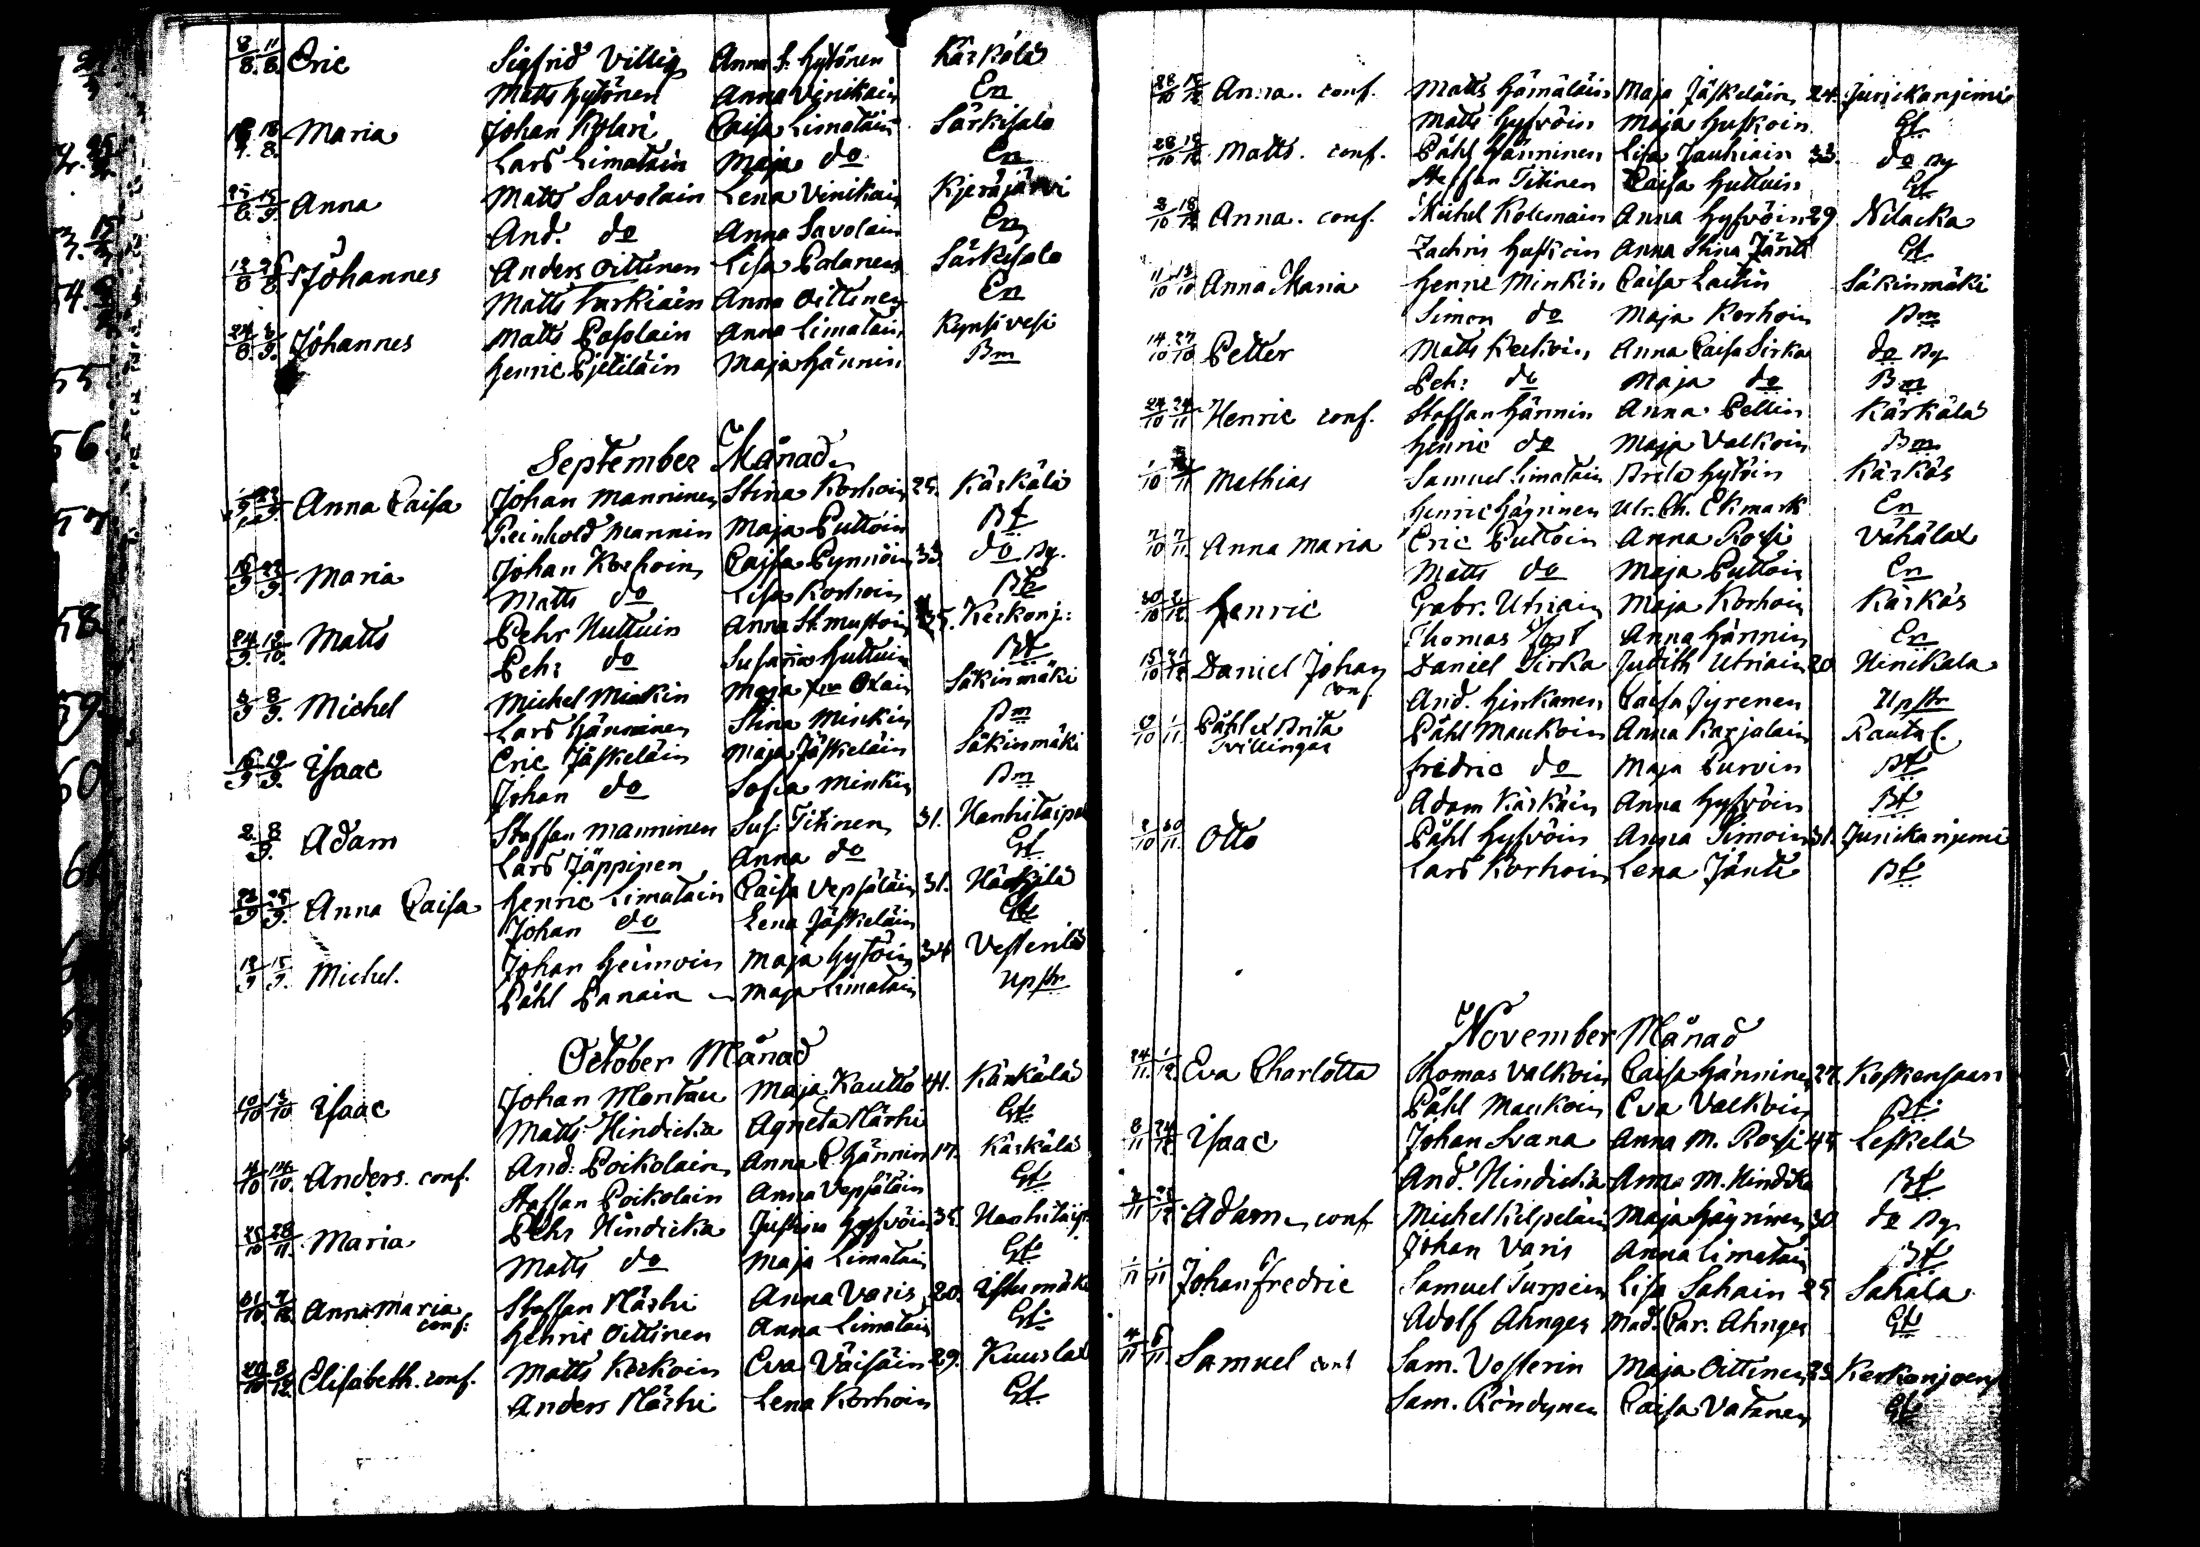 8/8. 11/8. Eric Sigfrid Villig Anna S. Hytönen Kärkölä
Matts Hytönen Anna Vinikain En
18/8. Maria Johan Kolari Caisa Limatain Särkisalo
Lars Limatain Maja do En
15/9. Anna Matts Savolain Lena Vinikain Kjeräjärvi
And. do Anna Savolain En
Johannes Anders Oittinen Lisa Palanen Särkisalo
Matts Turkiain Anna Oittinen En
24/8. 3/9. Johannes Matts Pasolain Anna Limatain Kynsivesi
Henric Pjetiläin Maja Hännin Bm
September Månad
Anna Caisa Johan Manninen Stina Korhoin 25. Kärkälä
Reinhold Mannin Maja Puttoin Bt
Maria Johan Korhoin Caisa Pynnöin 33 do By.
Matts do Lisa Korhoin Bt
24/9. Matts Pehr Huttuin Anna St. Mustoin 25. Kerkonj:
Pehr do Susanna Huttuin Bt
8/9. Michel Michel Minkin Maja Oxain Säkinmäki
Lars Hänninen Stina Minkin Bm
16/9 19/9. Isaac Eric Jäskeläin Maja Jäskeläin Säkinmäki
Johan do Sofia Minkin Bm
2. 8/9. Adam Staffan Manninen Sus: Titinen 31. Hanhitaipal
Lars Jäppinen Anna do Gt
Anna Caisa Henric Limatain Caisa Vepsäläin 31. Häckilä
Johan do Lena Jäskeläin Gt
15/9. Michel. Johan Heimoin Maja Hytöin 34 Vesterilä
Påhl Panain Maja Limatain Upstr
October Månad
10/10 13/10 Isaac Johan Montau Maja Kautto 41. Kärkälä
Matts Hindicka Agneta Närhi Gt
4/10 14/10. Anders. conf. And: Poikolain Anna C. Hännin 17. Kärkälä
Staffan Poikolain Anna Vepsäläin Gt
25/10 28/11. Maria Pehr Hindicka Justina Hyfvöin 35. Hanhitaip.
Matts do Maja Limatain Gt
Anna Maria conf: Staffan Närhi Anna Varis 20. Istumäki
Henric Oittinen Anna Limatain Gt
Elisabeth. conf. Matts Kerkoin Eva Väisäin 29. Kuuslax
Anders Närhi Lena Korhoin Gt
28/10 Anna. conf. Matts Hämäläin Maja Jäskeläin 24. Jurickaniemi
Matts Hyfvöin Maja Huskoin Gt
28/10 Matts. conf. Påhl Hänninen Lisa Jauhiain 33. do By
Steffan Titinen Caisa Huttuin Gt
Anna. conf. Michel Kolemain Anna Hyfvöin 29. Nilacka
Zachris Huskoin Anna Stina Jänt Gt
11/10 13/10 Anna Maria Henric Minkin Caisa Laitin Säkinmäki
Simon do Maja Korhoin Bm
14/10 27/10 Petter Matts Kerkoin Anna Caisa Sirka do By
Pehr do Maja do Bm
24/10 24/11 Henric conf. Staffan Hännin Anna Pellin Kärkälä
Henric do Maja Valkoin Bm
Mathias Samuel Limatain Brita Hytöin Kärkäs
Henric Häyrinen Ulr. Ch. Ekmark En
7/10 7/11 Anna Maria Eric Puttoin Anna Rossi Vähälax
Matts do Maja Puttoin En
30/10 Henric Gabr. Utriain Maja Korhoin Kärkäs
Thomas Anna Hännin En
Daniel Johan conf. Daniel Sirka Judith Utriain 20 Hinikala
And. Hinkanen Caisa Jyrenen Upstr
Påhl & Brita Tvillingar Påhl Maukoin Anna Karjalain
Fredric do Maja Purvin Bt
Adam Kärkäin Anna Hyfvöin Bt
30/11. Otto Påhl Hyfvöin Anna Simoin 31. Jurickaniemi
Lars Korhoin Lena Jänti Bt
November Månad
24/11. 1/12. Eva Charlotta Thomas Valkoin Caisa Hänninen 27. Koskensaari
Påhl Maukoin Eva Valkoin Bt
8/11 Isaac Johan Svana Anna M. Rossi Leskelä
And. Hindicka Anna M. Hindicka Bt
Adam conf Michel Kilpeläin Maja Häyrinen 30 do By
Johan Varis Anna Limatain Bt
1/11 Johan Fredric Samuel Turpein Lisa Sahain 25 Sahala
Adolf Ahnger Mad. Car. Ahnger Gt
4/11 6/11. Samuel conf Sam. Vesterin Maja Oittinen Kerkonjoensu
Sam. Röndynen Caisa Vatanen Gt